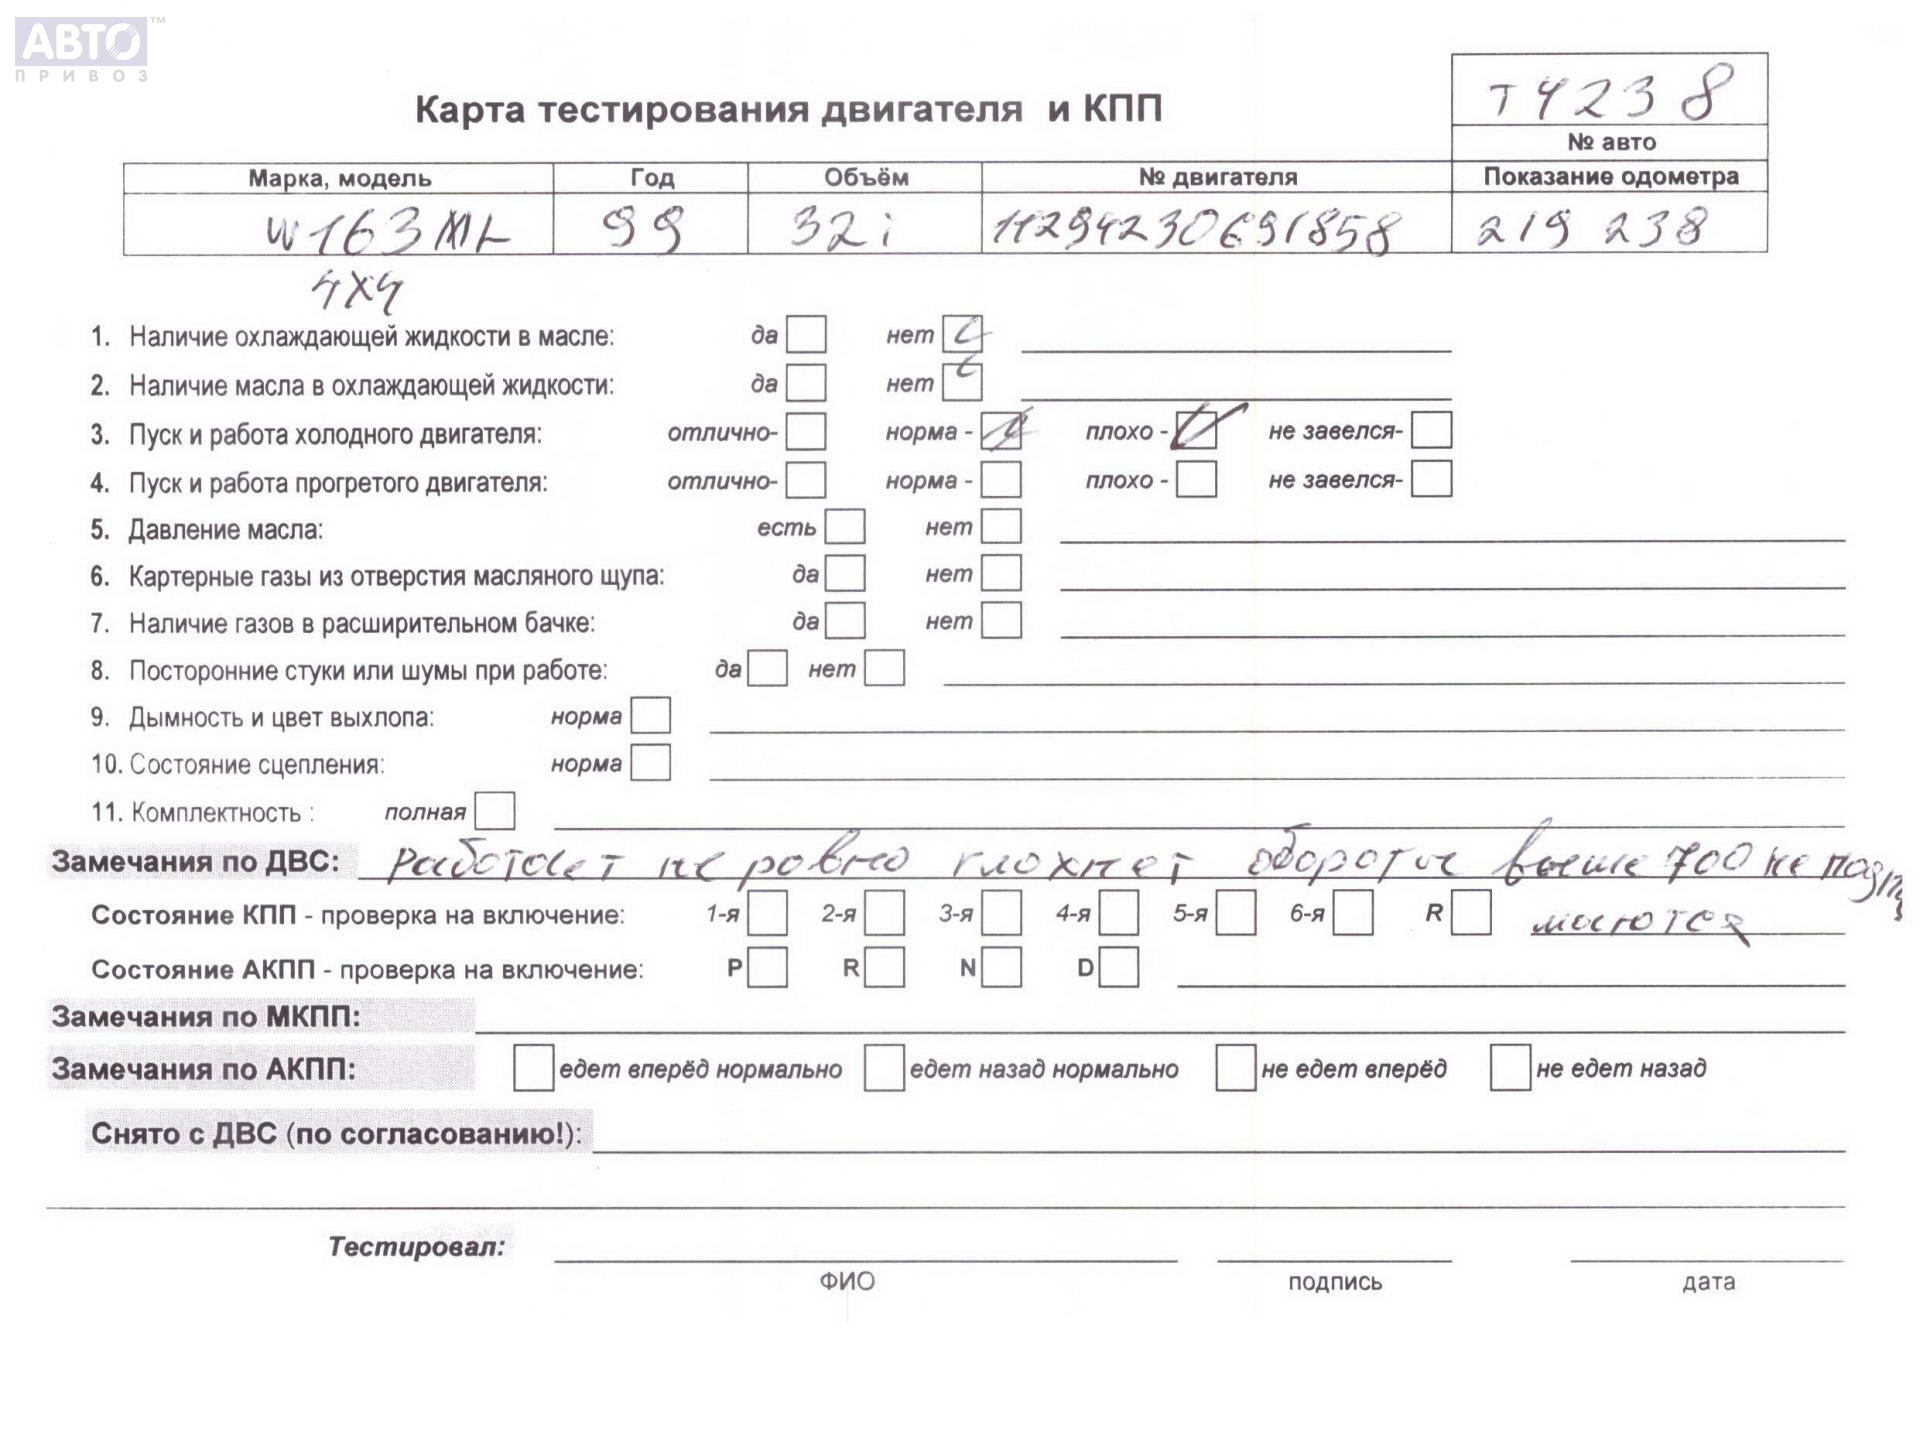 АВТО™
ПРИВОЗ
Т4238
Карта тестирования двигателя и КПП
№ авто
Марка, модель Год Объём № двигателя Показание одометра
W163 ML 99 32i 11294230691858 219 238
4X4
1. Наличие охлаждающей жидкости в масле: да нет
2. Наличие масла в охлаждающей жидкости: да нет
3. Пуск и работа холодного двигателя: отлично- норма - плохо - не завелся-
4. Пуск и работа прогретого двигателя: отлично- норма - плохо - не завелся-
5. Давление масла: есть нет
6. Картерные газы из отверстия масляного щупа: да нет
7. Наличие газов в расширительном бачке: да нет
8. Посторонние стуки или шумы при работе: да нет
9. Дымность и цвет выхлопа: норма
10. Состояние сцепления: норма
11. Комплектность : полная
Замечания по ДВС: Работает не ровно глохнет обороты выше 700 не подни
Состояние КПП - проверка на включение: 1-я 2-я 3-я 4-я 5-я 6-я R маются
Состояние АКПП - проверка на включение: P R N D
Замечания по МКПП:
Замечания по АКПП: едет вперёд нормально едет назад нормально не едет вперёд не едет назад
Снято с ДВС (по согласованию!):
Тестировал:
ФИО подпись дата